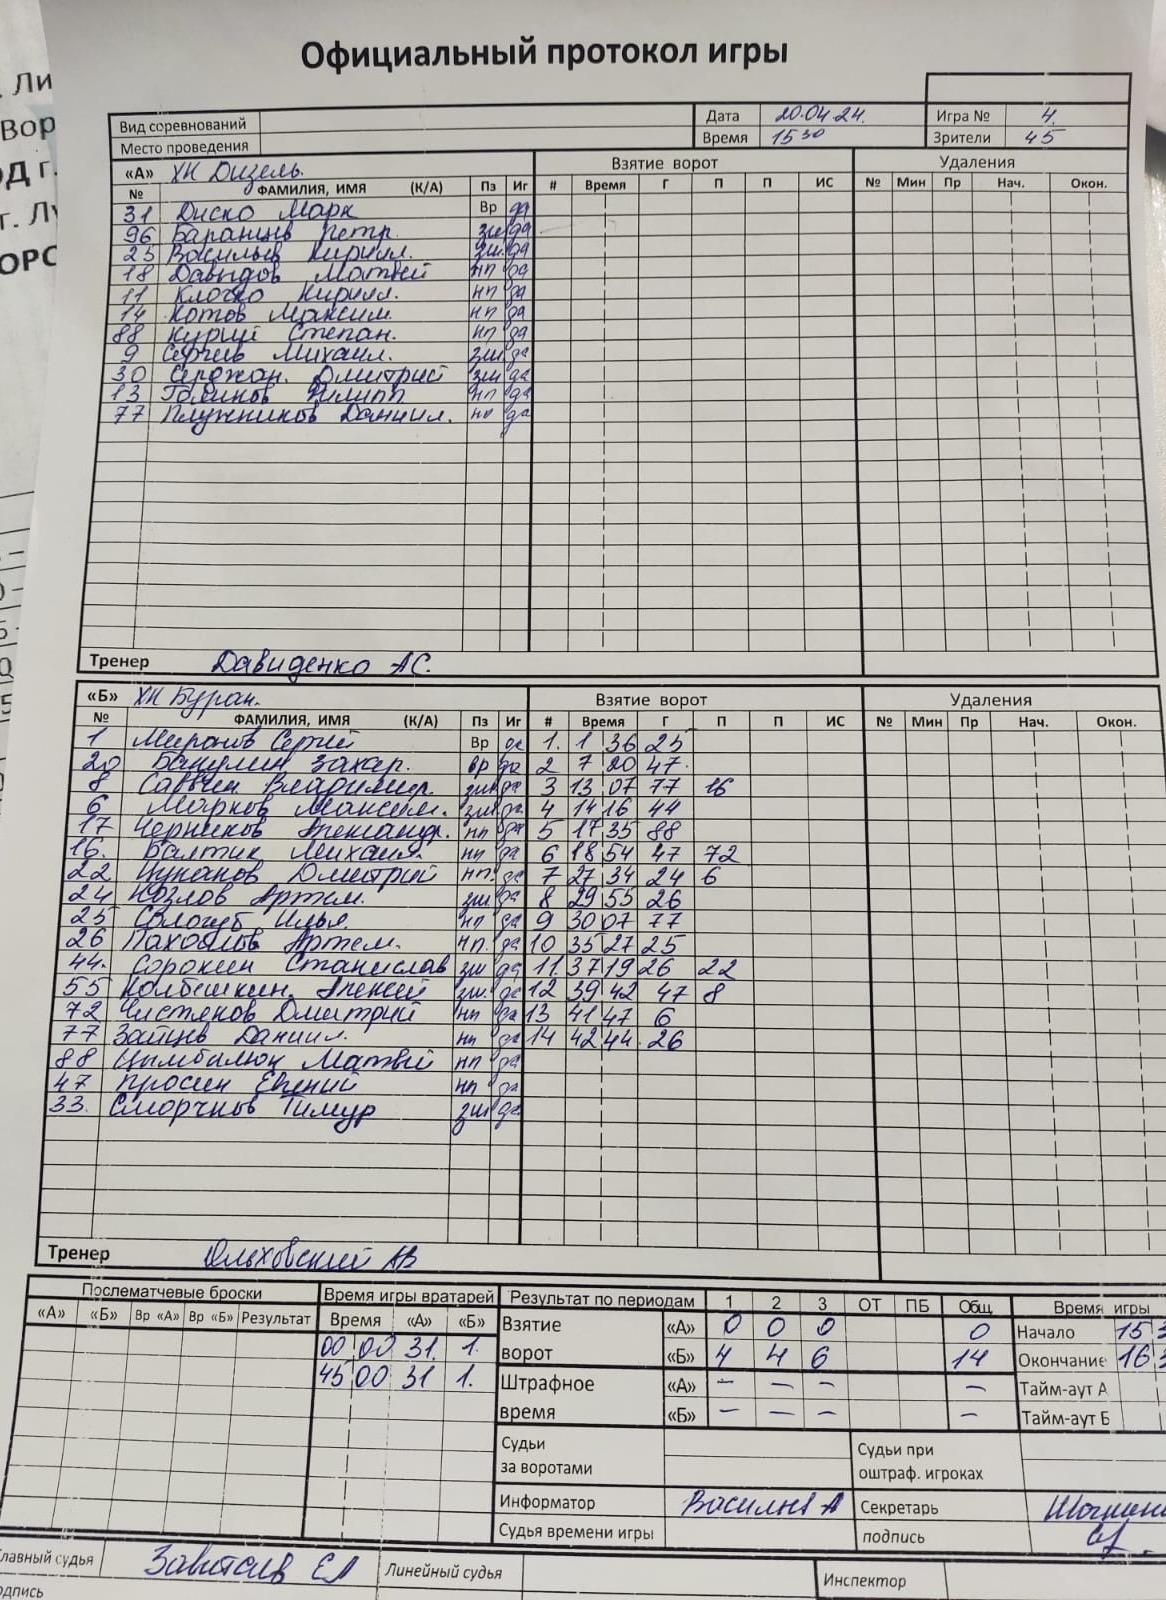 Официальный протокол игры
Вид соревнований Дата 20.04.24. Игра № 4.
Место проведения Время 15 30 Зрители 45
«А» ХК Дизель. Взятие ворот Удаления
№ ФАМИЛИЯ, ИМЯ (К/А) Пз Иг # Время Г П П ИС № Мин Пр Нач. Окон.
31 Диско Марк Вр да
96 Баранцев Петр. зщ да
25 Васильев Кирилл. зщ. да
18 Давыдов Матвей нп да
11 Клочко Кирилл. нп да
14 Котов Максим. нп да
88 Степан. нп да
9 Сергеев Михаил. зщ да
30 Сержан. Дмитрий зщ да
13 Голиков Филипп нп да
77 Плужников Даниил. нп да
Тренер Давиденко АС.
«Б» ХК Буран. Взятие ворот Удаления
№ ФАМИЛИЯ, ИМЯ (К/А) Пз Иг # Время Г П П ИС № Мин Пр Нач. Окон.
1 Миронов Сергей Вр да 1. 1 36 25
20 Бакулин Захар. вр да 2 7 20 47.
8 Саввин Владимир. зщ да 3 13 07 77 16
6 Марков Максим. зщ да 4 14 16 44
17 Черников Александр. нп да 5 17 35 88
16. Балтик Михаил. нп да 6 18 54 47 72
22 Цуканов Дмитрий нп. да 7 27 34 24 6
24 Козлов Артем. зщ да 8 29 55 26
25 Сологуб Илья. нп да 9 30 07 77
26 Пахомов Артем. нп. да 10 35 27 25
44. Сорокин Станислав зщ да 11. 37 19 26 22
55 Колбешкин. Алексей зщ. да 12 39 42 47 8
72 Чистяков Дмитрий нп да 13 41 47 6
77 Зайцев Даниил. нп да 14 42 44. 26
88 Цымбалюк Матвей нп да
47 Просин Евгений нп да
33. Сморчков Тимур зщ да
Тренер Ольховский АВ
Послематчевые броски Время игры вратарей Результат по периодам 1 2 3 ОТ ПБ Общ Время игры
«А» «Б» Вр «А» Вр «Б» Результат Время «А» «Б» Взятие ворот «А» 0 0 0 0 Начало 15 3
00 00 31. 1. «Б» 4 4 6 14 Окончание 16 3
45 00 31 1. Штрафное время «А» – – – – Тайм-аут А
«Б» – – – – Тайм-аут Б
Судьи за воротами Судьи при оштраф. игроках
Информатор Васильев А Секретарь
Судья времени игры подпись
Главный судья ЕА Линейный судья Инспектор